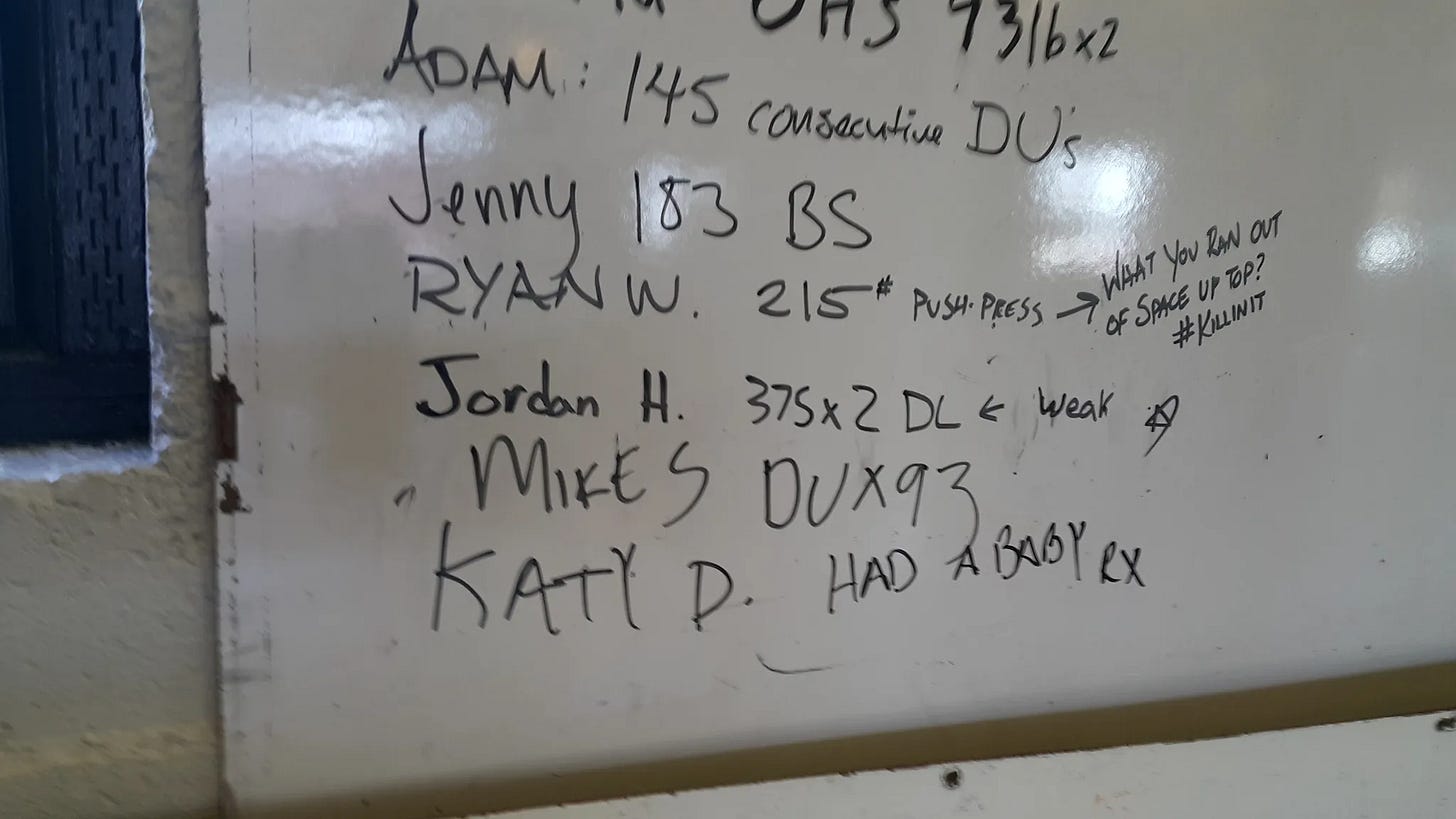 OHS 93lb x2
ADAM: 145 consecutive DU's
Jenny 183 BS
RYAN W. 215# PUSH-PRESS → WHAT YOU RAN OUT
OF SPACE UP TOP?
#KILLINIT
Jordan H. 375x2 DL ← weak
MIKE S DUX93
KATY D. HAD A BABY RX